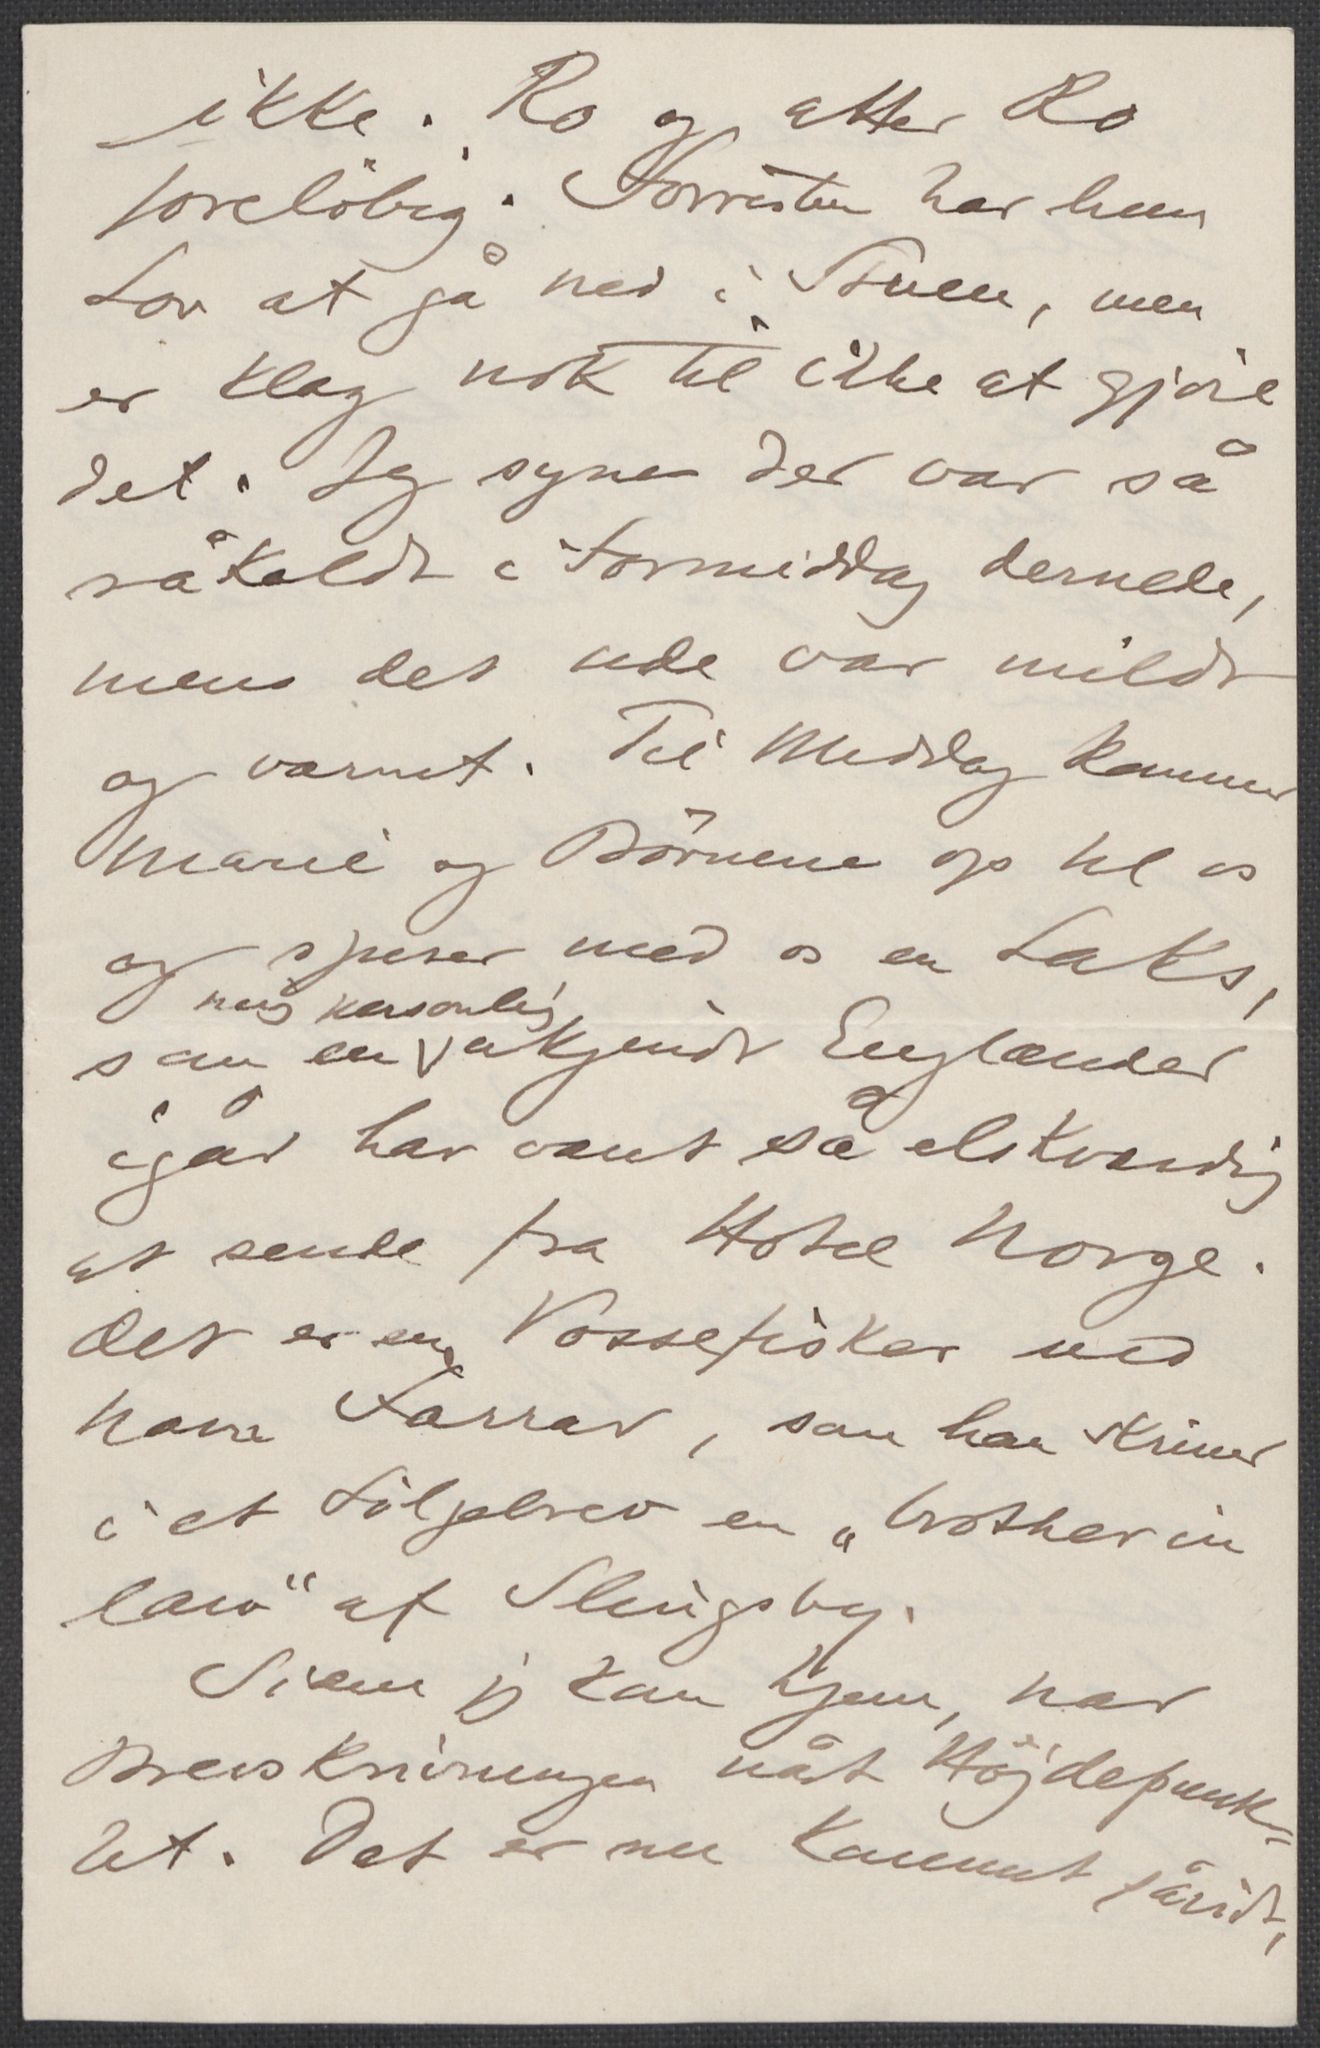 ikke. Ro og atter Ro
foreløbig. Forresten har hun
Lov at gå ned i Stuen, men
er klog nok til ikke at gjöre
det. Jeg synes der var så
råkoldt i Formiddag dernede,
mens det ude var mildt
og varmt. Til Middag kommer
Marie og Börnene op til os
og spiser med os en Laks,
som en mig personlig ukjendt Englænder
igår har været så elskværdig
at sende fra Hotel Norge.
Det er en Vossefisker ved
Navn Farrar, som han skriver
i et Fölgebrev en „brother in
law“ af Slingsby.
Siden jeg kom hjem, har
Brevskrivningen nåt Höjdepunk-
tet. Det er nu kommet såvidt,